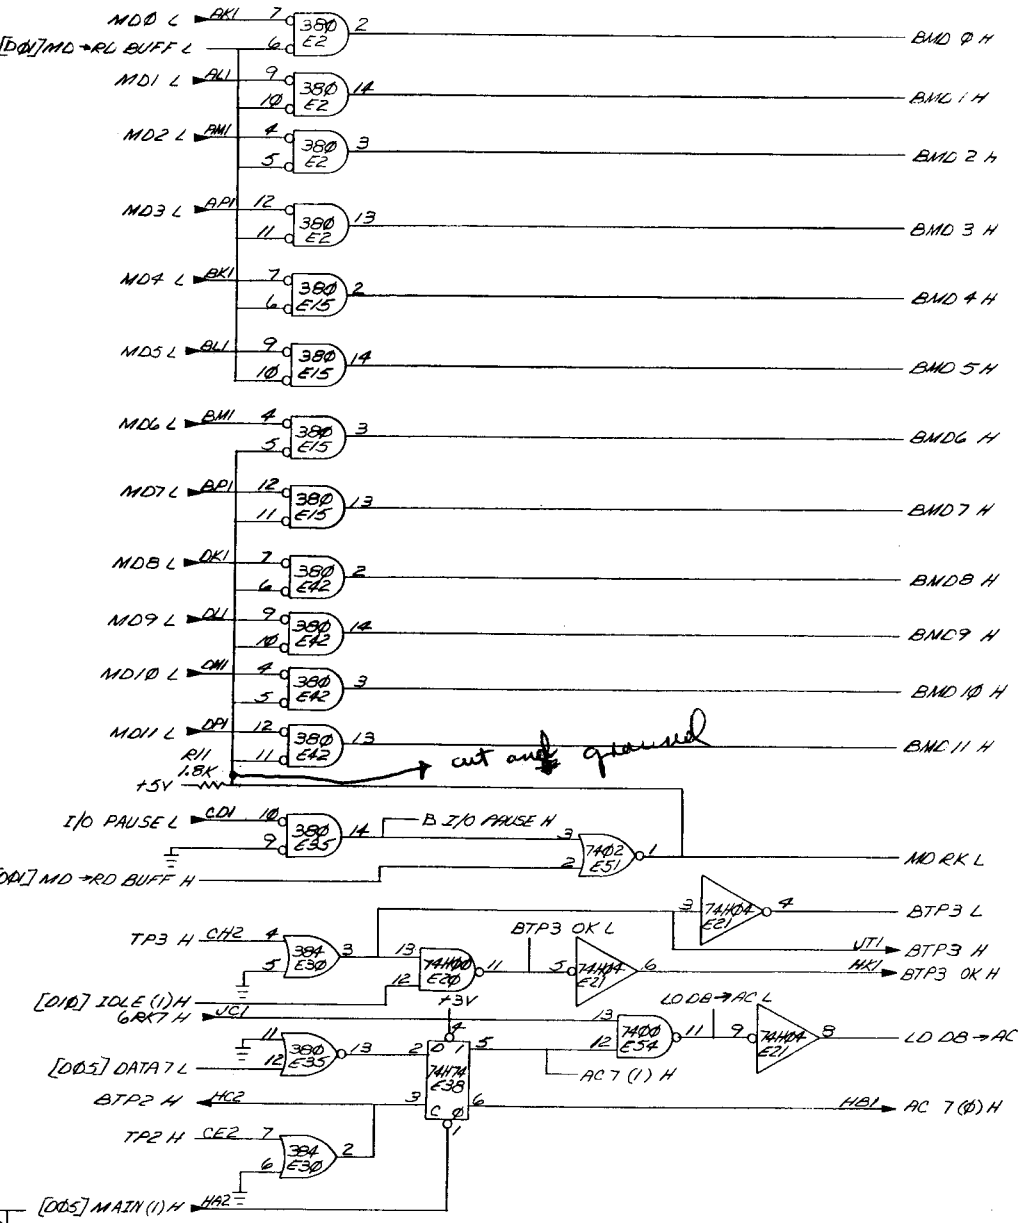 MDØ L AK1 7 380 E2 2 BMD Ø H
[DØ1] MD→RD BUFF L 6
MD1 L AL1 9 10 380 E2 14 BMD 1 H
MD2 L AM1 4 5 380 E2 3 BMD 2 H
MD3 L AP1 12 11 380 E2 13 BMD 3 H
MD4 L BK1 7 6 380 E15 2 BMD 4 H
MD5 L BL1 9 10 380 E15 14 BMD 5 H
MD6 L BM1 4 5 380 E15 3 BMD6 H
MD7 L BP1 12 11 380 E15 13 BMD 7 H
MD8 L DK1 7 6 380 E42 2 BMD8 H
MD9 L DL1 9 10 380 E42 14 BMD9 H
MD1Ø L DM1 4 5 380 E42 3 BMD 1Ø H
MD11 L DP1 12 11 380 E42 13 BMD 11 H
cut and ground
R11
1.8K
+5V
I/O PAUSE L CD1 10 9 380 E35 14 B I/O PAUSE H 3 2 7402 E51 1 MD RK L
MD→RD BUFF H
3 74H04 E21 4 BTP3 L
TP3 H CH2 4 5 384 E30 3 13 12 74H00 E20 11 BTP3 OK L 5 74H04 E21 6
JT1 BTP3 H
HK1 BTP3 OK H
[D1Ø] IDLE (1) H
+3V
6RK7 H JC1 13 12 7400 E54 11 LD DB→AC L 9 74H04 E21 8 LD DB→AC
[DØ5] DATA 7 L 11 12 380 E35 13 2 D 1 4 5 74H74 E38 3 C Ø 6 1
AC 7 (1) H
BTP2 H HC2
HB1 AC 7 (Ø) H
TP2 H CE2 7 6 384 E30 2
[DØ5] MAIN (1) H HA2